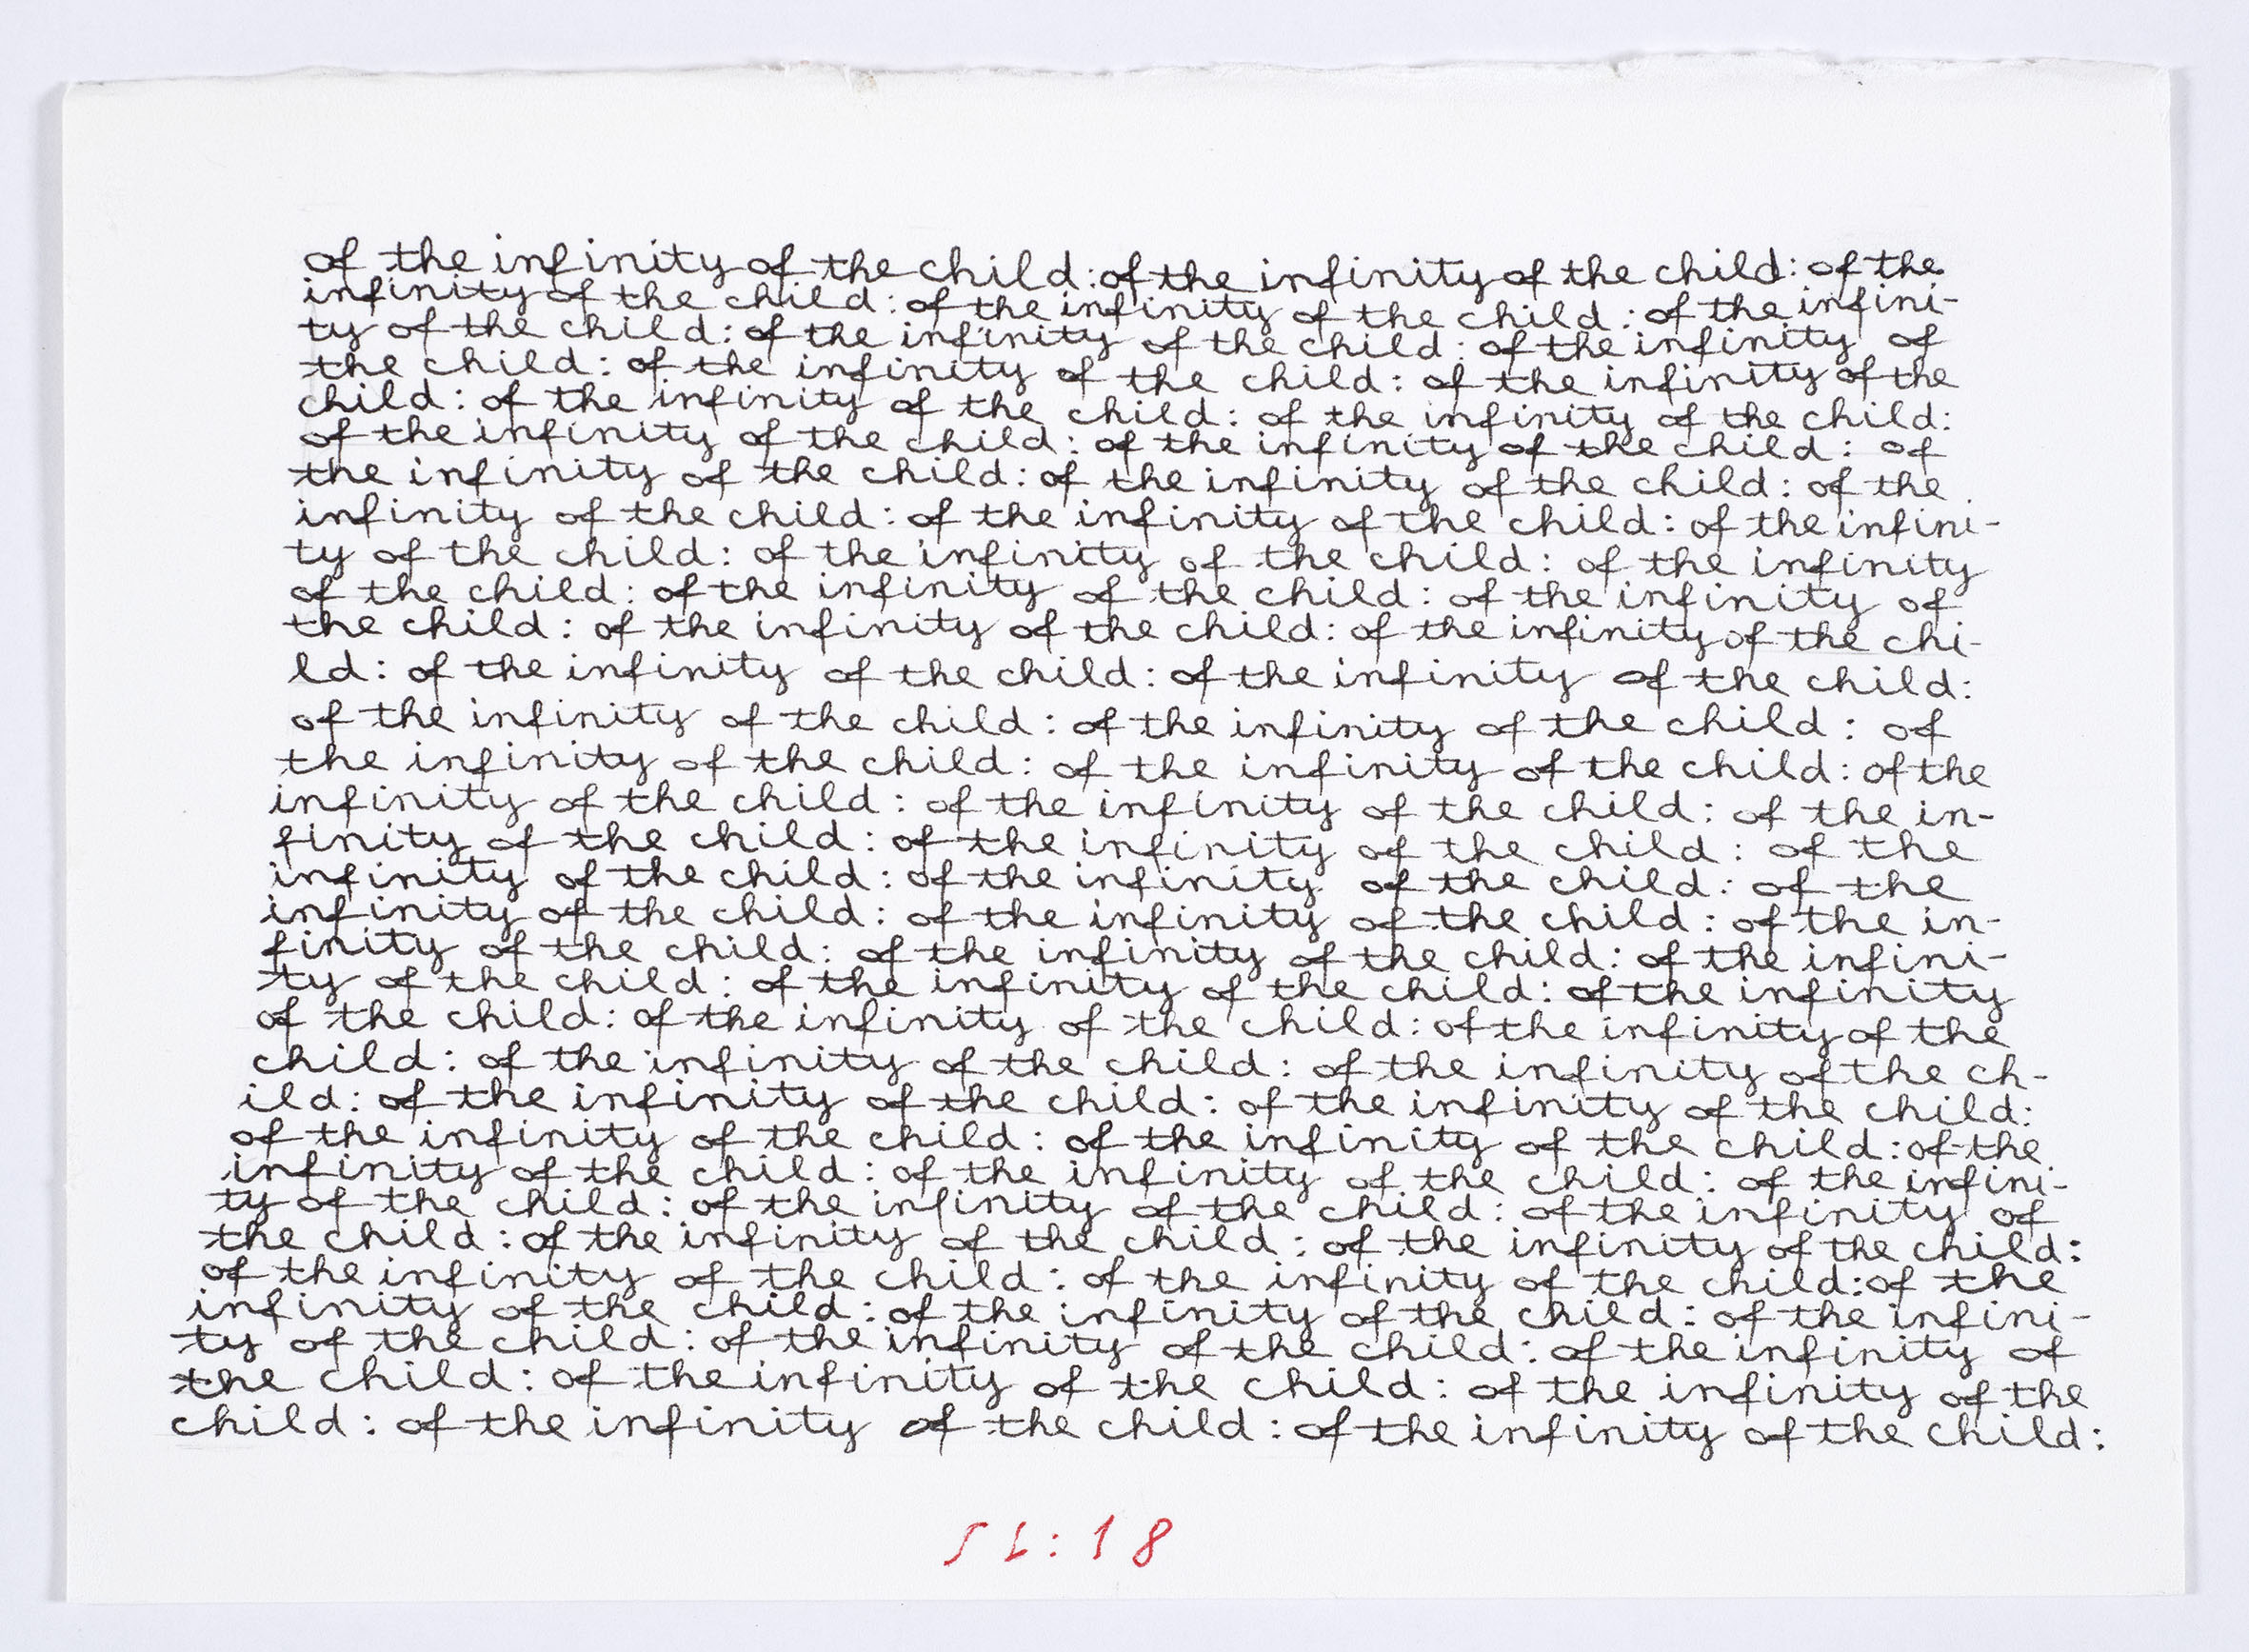 of the infinity of the child: of the infinity of the child: of the
infinity of the child: of the infinity of the child: of the infini-
ty of the child: of the infinity of the child: of the infinity of
the child: of the infinity of the child: of the infinity of the
child: of the infinity of the child: of the infinity of the child:
of the infinity of the child: of the infinity of the child: of
the infinity of the child: of the infinity of the child: of the
infinity of the child: of the infinity of the child: of the infini-
ty of the child: of the infinity of the child: of the infinity
of the child: of the infinity of the child: of the infinity of
the child: of the infinity of the child: of the infinity of the chi-
ld: of the infinity of the child: of the infinity of the child:
of the infinity of the child: of the infinity of the child: of
the infinity of the child: of the infinity of the child: of the
infinity of the child: of the infinity of the child: of the in-
finity of the child: of the infinity of the child: of the
infinity of the child: of the infinity of the child: of the
infinity of the child: of the infinity of the child: of the in-
finity of the child: of the infinity of the child: of the infini-
ty of the child: of the infinity of the child: of the infinity
of the child: of the infinity of the child: of the infinity of the
child: of the infinity of the child: of the infinity of the ch-
ild: of the infinity of the child: of the infinity of the child:
of the infinity of the child: of the infinity of the child: of the
infinity of the child: of the infinity of the child: of the infini-
ty of the child: of the infinity of the child: of the infinity of
the child: of the infinity of the child: of the infinity of the child:
of the infinity of the child: of the infinity of the child: of the
infinity of the child: of the infinity of the child: of the infini-
ty of the child: of the infinity of the child: of the infinity of
the child: of the infinity of the child: of the infinity of the
child: of the infinity of the child: of the infinity of the child:
SL:18